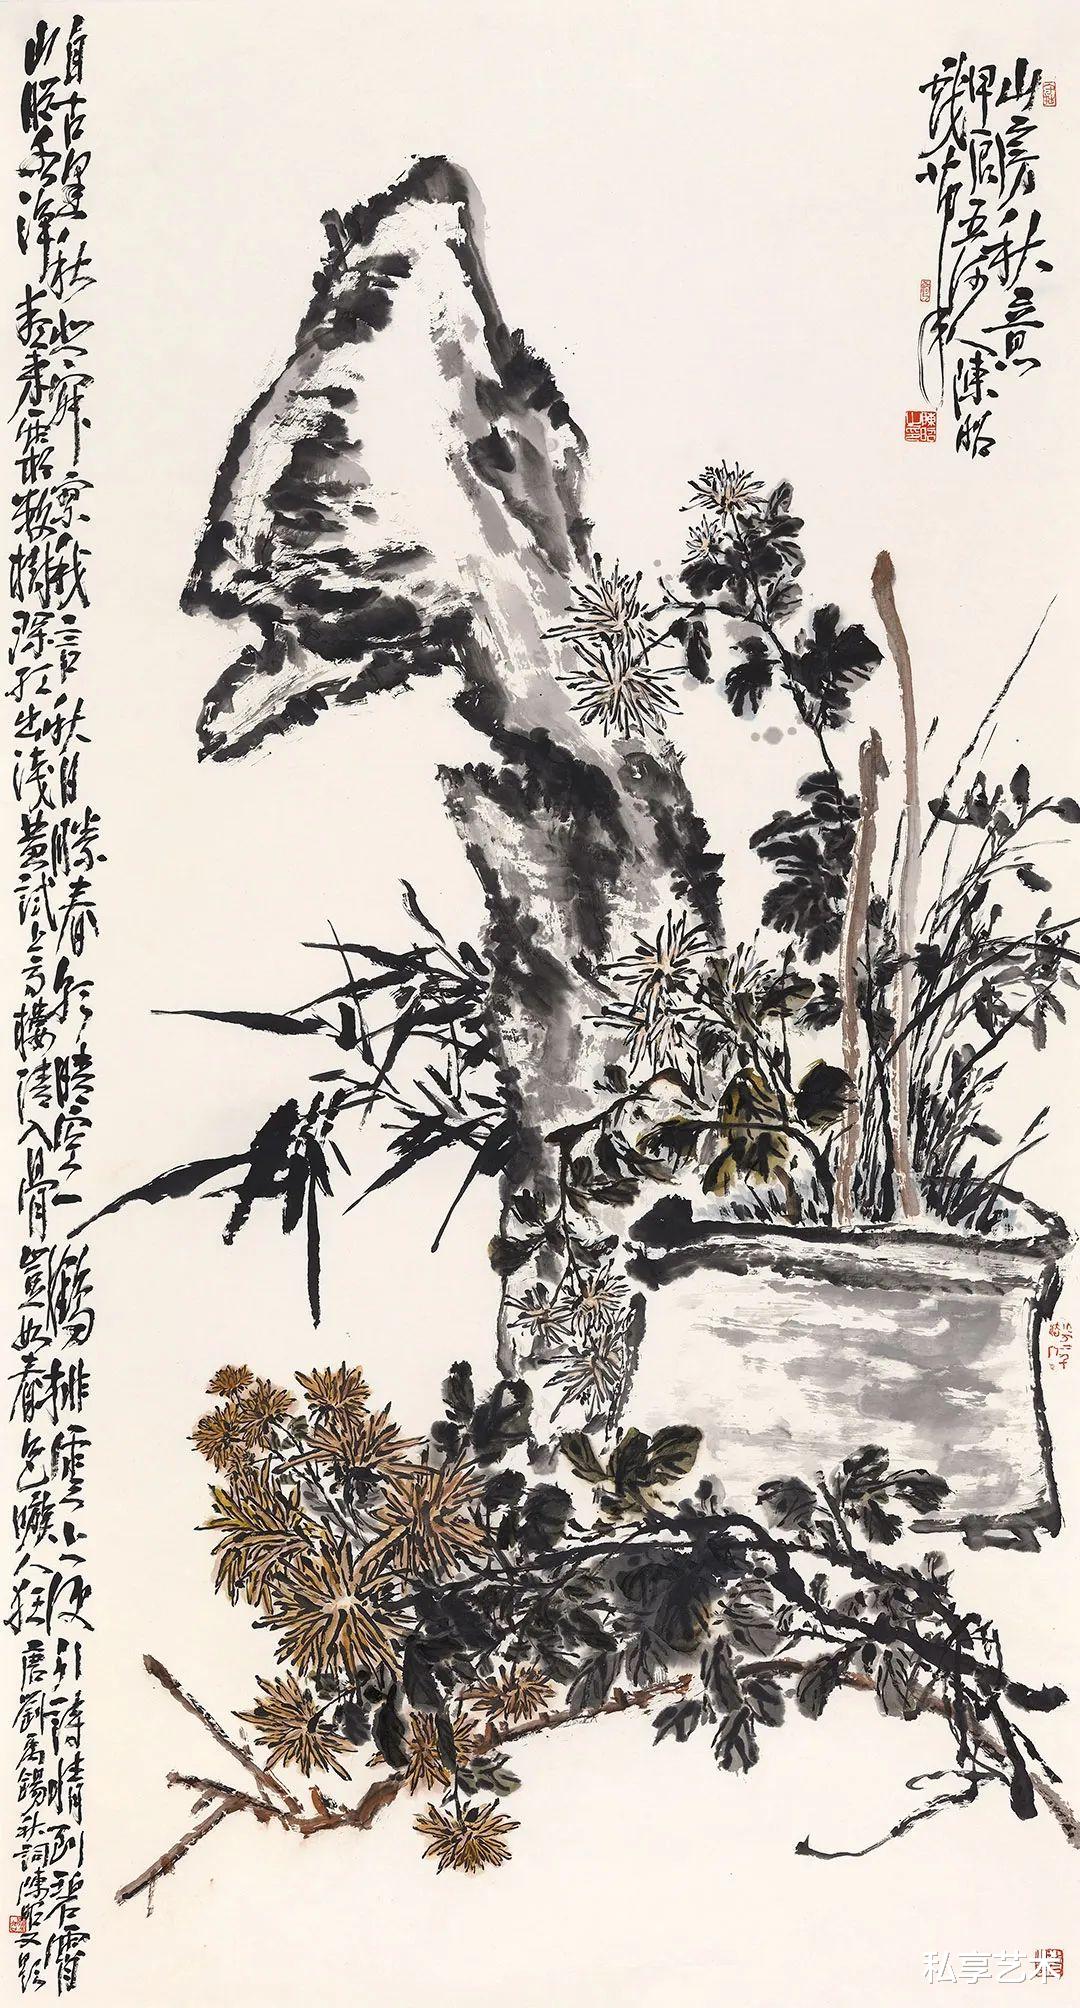 山房秋意
甲辰五河人陳昭
戲筆
陳昭之印
自古逢秋悲寂寥我言秋日勝春朝晴空一鶴排雲上便引詩情到碧霄
山明水淨夜來霜數樹深紅出淺黃試上高樓清入骨豈如春色嗾人狂唐劉禹錫秋詞陳昭又題
私享艺术